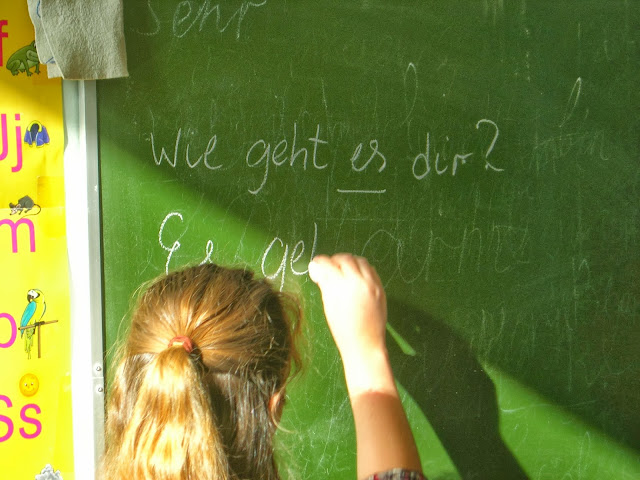 Sehr
Wie geht es dir?
Es geh
f
Jj
m
p
Ss